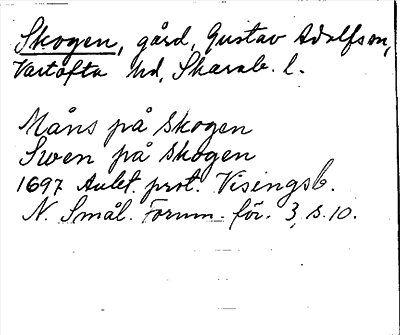 Skogen, gård, Gustav Adolfs sn,
Vartofta hd, Skarab. l.
Måns på Skogen
Swen på Skogen
1697 Aulet. prot. Visingsb.
N. Smål. Fornm. för. 3, s. 10.